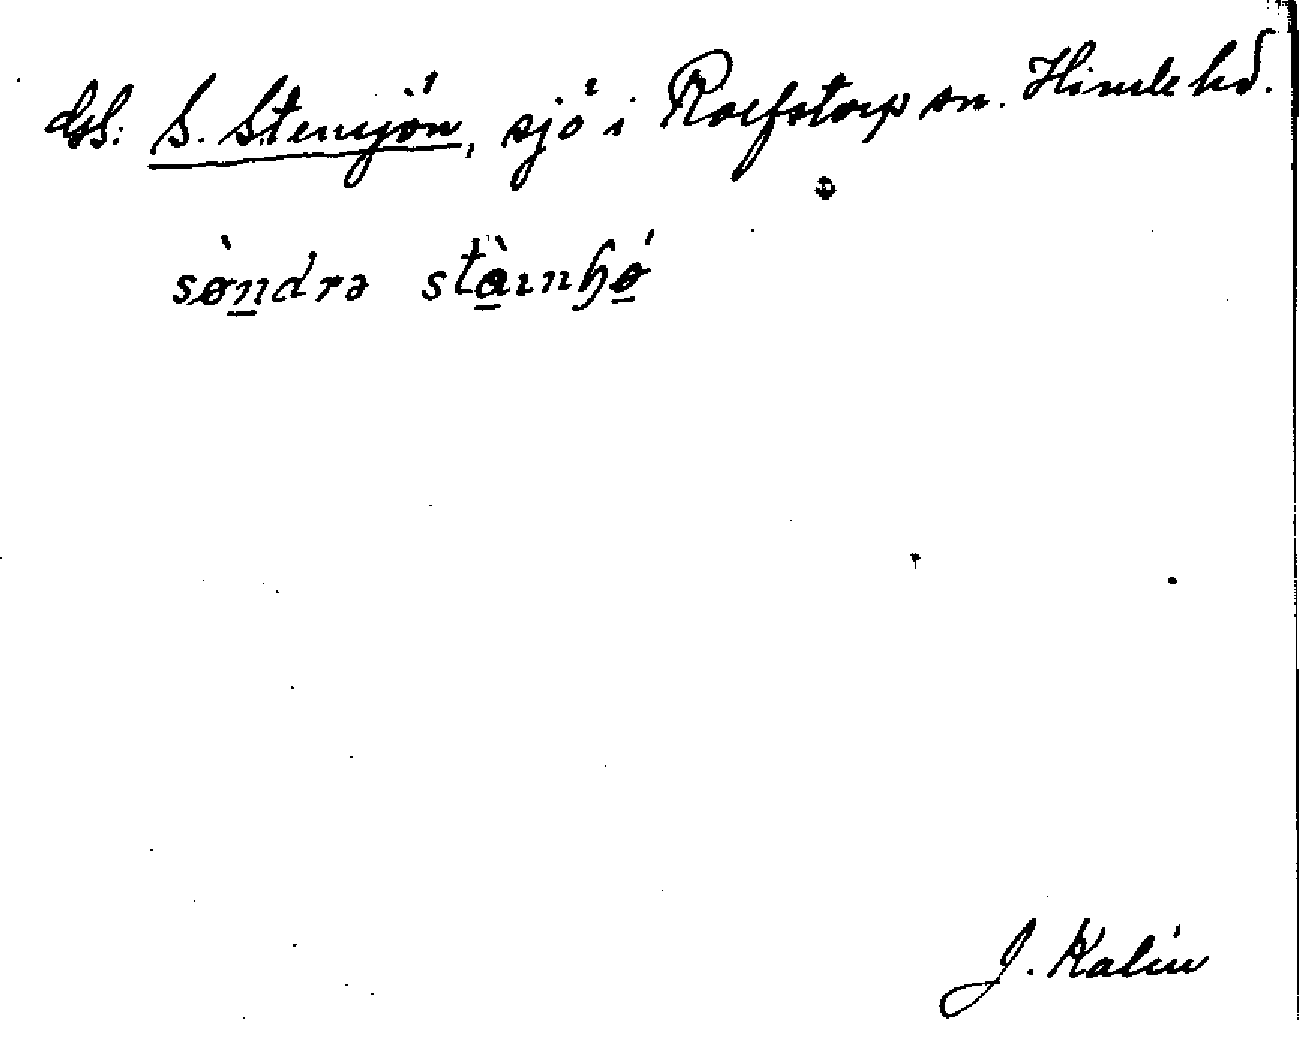 GS: S. Stensjön, sjö i Rolfstorp sn. Himle hd.
sø̀ndrə stàınɧø
J. Kalén